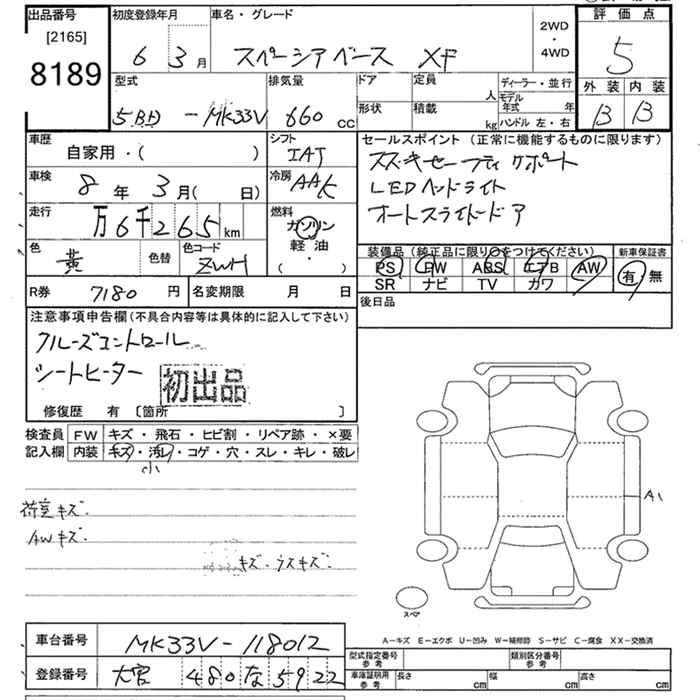 出品番号
[2165]
8189
初度登録年月
6 3月
車名・グレード
スペーシアベース XF
2WD
・
4WD
評価点
5
外装 内装
B B
型式
5BD-MK33V
排気量
660 CC
ドア
形状
定員
人
積載
kg
ディーラー・並行
モデル年式 年
ハンドル 左・右
車歴
自家用・( )
シフト
IAT
車検
8年 3月( 日)
冷房
AAC
走行
万6千265km
燃料
ガソリン
軽油
・( )
色
黄
色替
色コード
ZWH
R券 7180円
名変期限 月 日
セールスポイント (正常に機能するものに限ります)
スズキセーフティサポート
LEDヘッドライト
オートスライドドア
装備品(純正品に限り○をつけてください)
PS PW ABS エアB AW
SR ナビ TV カワ
新車保証書
有 無
後日品
注意事項申告欄(不具合内容等は具体的に記入して下さい)
クルーズコントロール
シートヒーター
初出品
修復歴 有 〔箇所 〕
検査員記入欄
FW キズ・飛石・ヒビ割・リペア跡・×要
内装 キズ・汚レ・コゲ・穴・スレ・キレ・破レ
小
荷室キズ.
AWキズ.
キズ.ウスキズ.
A1
スペア
A-キズ E-エクボ U-凹み W-補修跡 S-サビ C-腐食 XX-交換済
車台番号
MK33V-118012
登録番号
大宮 480 な 5922
型式指定番号
参考
類別区分番号
参考
車庫証明用
参考
長さ cm
幅 cm
高さ cm